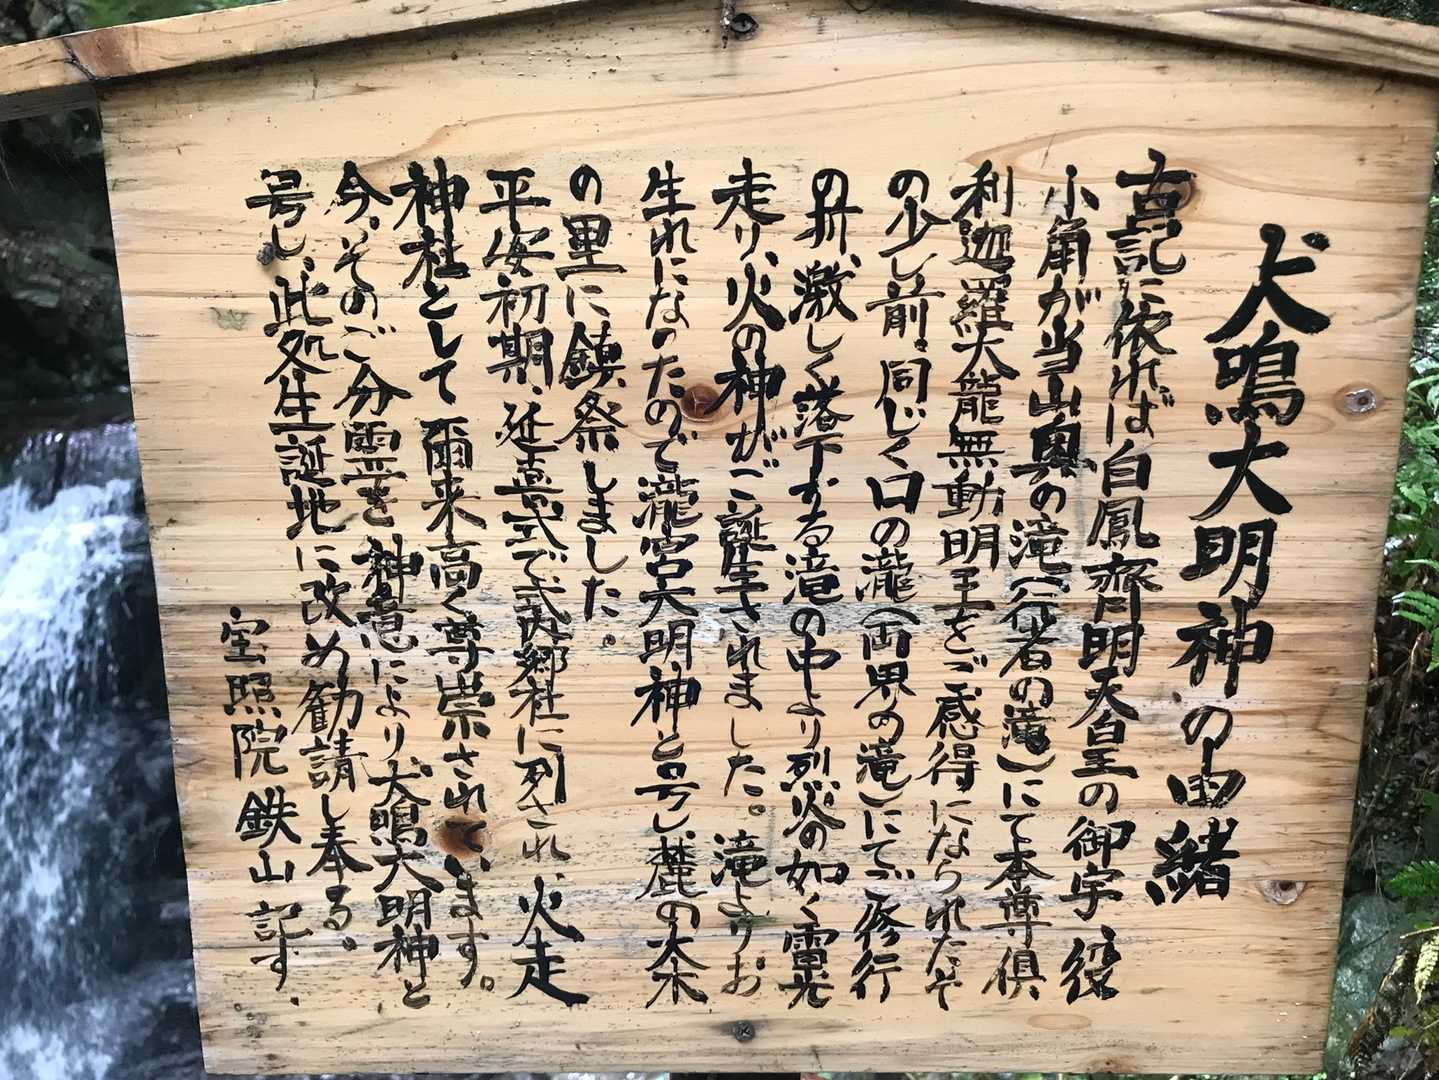 犬鳴大明神の由緒
古記に依れば白鳳齊明天皇の御宇役
小角が当山奥の滝(行者の滝)にて本尊倶
利迦羅大龍無動明王をご感得になられたそ
の少し前、同じく口の瀧(両界の滝)にてご修行
の折、激しく落下する滝の中より烈火の如く雷光
走り、火の神がご誕生されました。滝よりお
生れになったので瀧宮大明神と号し麓の大木
の里に鎮祭しました。
平安初期、延喜式で式内郷社に列され、火走
神社として爾来高く尊崇されています。
今、そのご分霊を神竜により犬鳴大明神と
号し、此処生誕地に改め勧請し奉る、
宝照院 鉄山 記す、